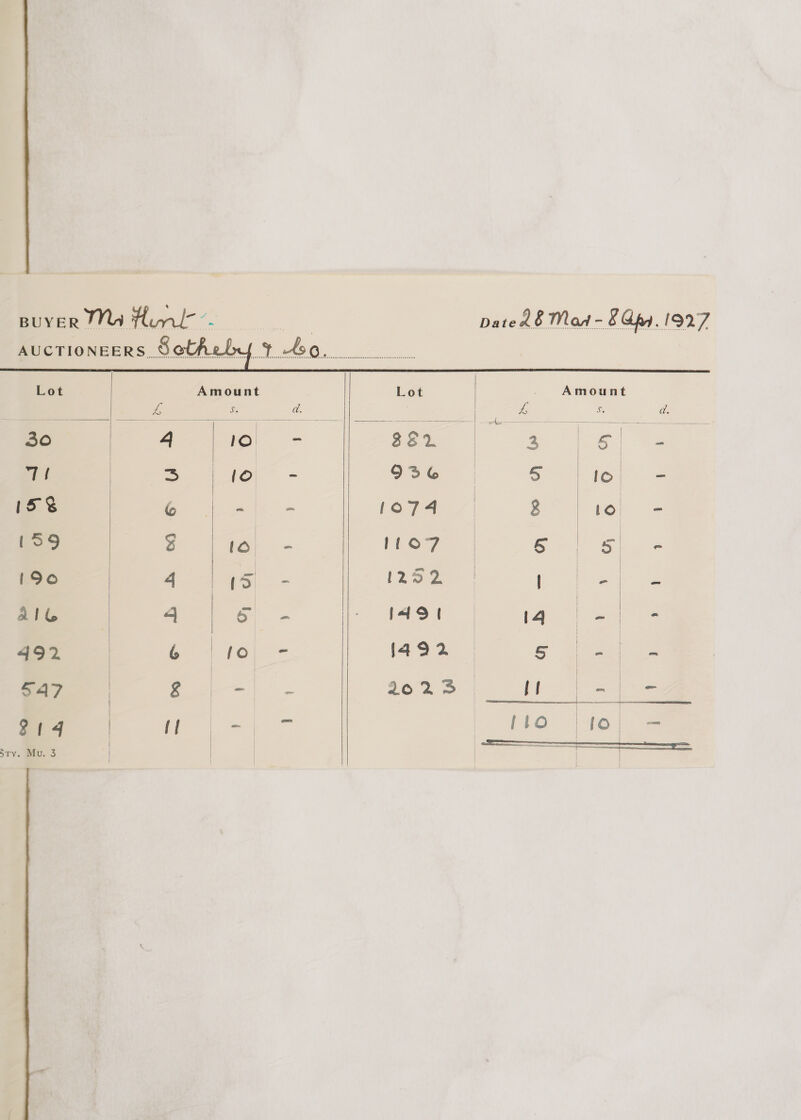 BUYER Mr Hunt - Date 28 Mar - 8 Apr. 1927
AUCTIONEERS Sotheby & Co.
Lot Amount Lot Amount
£ s. d. £ s. d.
30 4 10 - 882 3 5 -
71 3 10 - 936 5 10 -
158 6 - - 1074 8 10 -
159 8 10 - 1107 5 5 -
190 4 15 - 1252 1 - -
216 4 5 - 1491 14 - -
492 6 10 - 1492 5 - -
547 8 - - 2023 11 - -
814 11 - - 110 10 -
Sty. Mu. 3